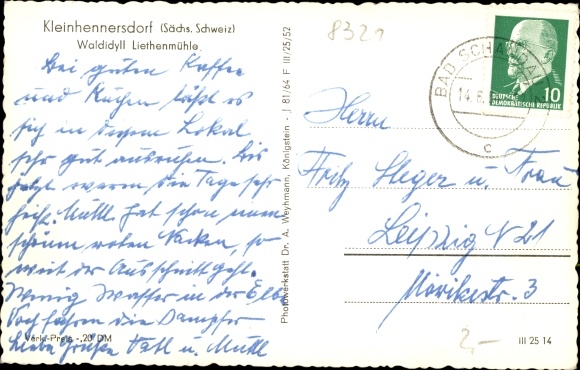 Kleinhennersdorf (Sächs. Schweiz)
Waldidyll Liethenmühle
Bei gutem Kaffee
und Kuchen läßt es
sich in diesem Lokal
sehr gut ausruhen. Bis
jetzt waren die Tage sehr
heiß. Mutti hat schon
roten Nacken, so
weit der Ausschnitt geht.
Wenig Wasser in der Elbe
Noch fahren die Dampfer
Liebe Grüße Vati u. Mutti
Verkf.-Preis -,20 DM
Photowerkstatt Dr. A. Weyhmann, Königstein - J 81/64 F III/25/52
8321
BAD SCHANDAU
14.8.
c
DEUTSCHE
DEMOKRATISCHE REPUBLIK
10
Herrn
Fritz Steger u. Frau
Leipzig N 21
Mörikestr. 3
2,-
III 25 14